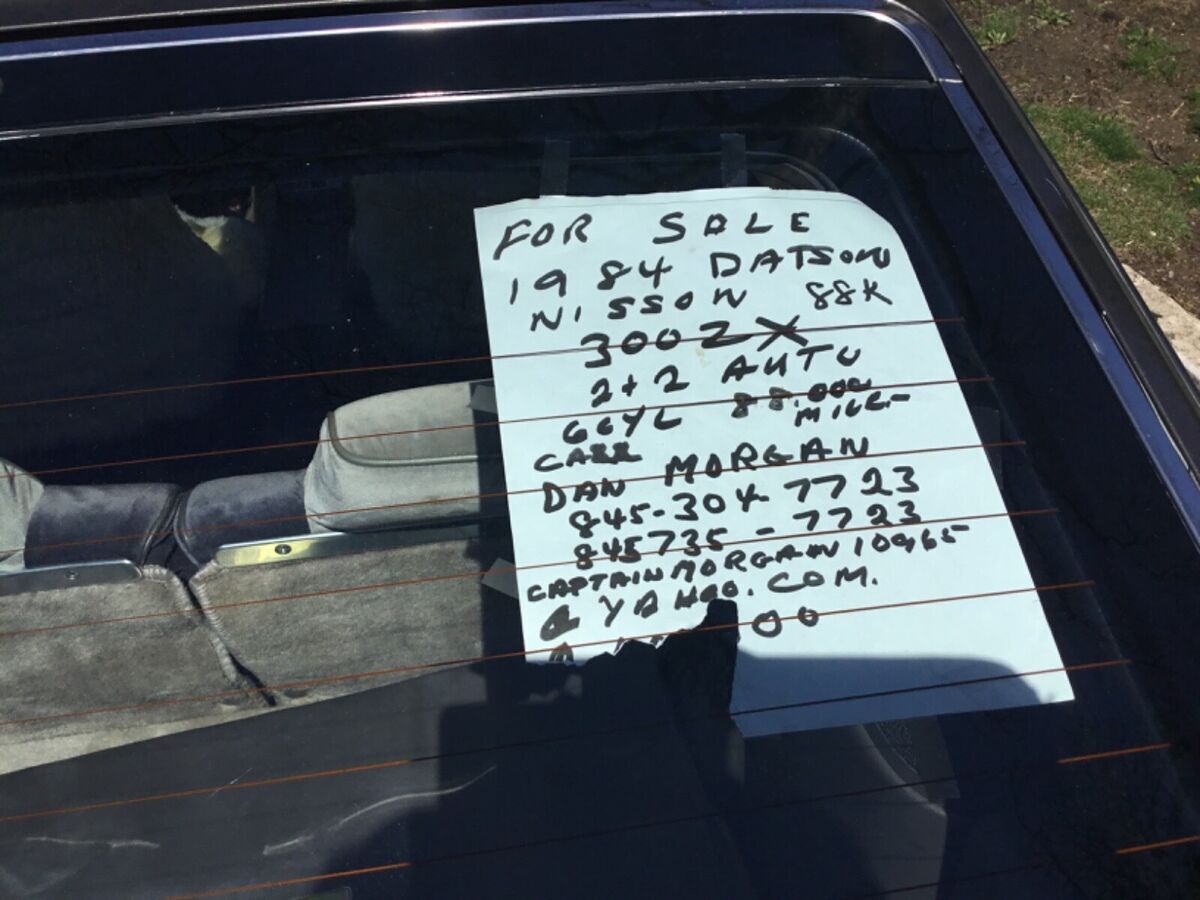 FOR SALE
1984 DATSON
NISSON 88K
300ZX
2+2 AUTO
6CYL 88.000
MILE
CALL
DAN MORGAN
845-304-7723
845735-7723
CAPTAINMORGAN10965
@ YAHOO.COM.
00